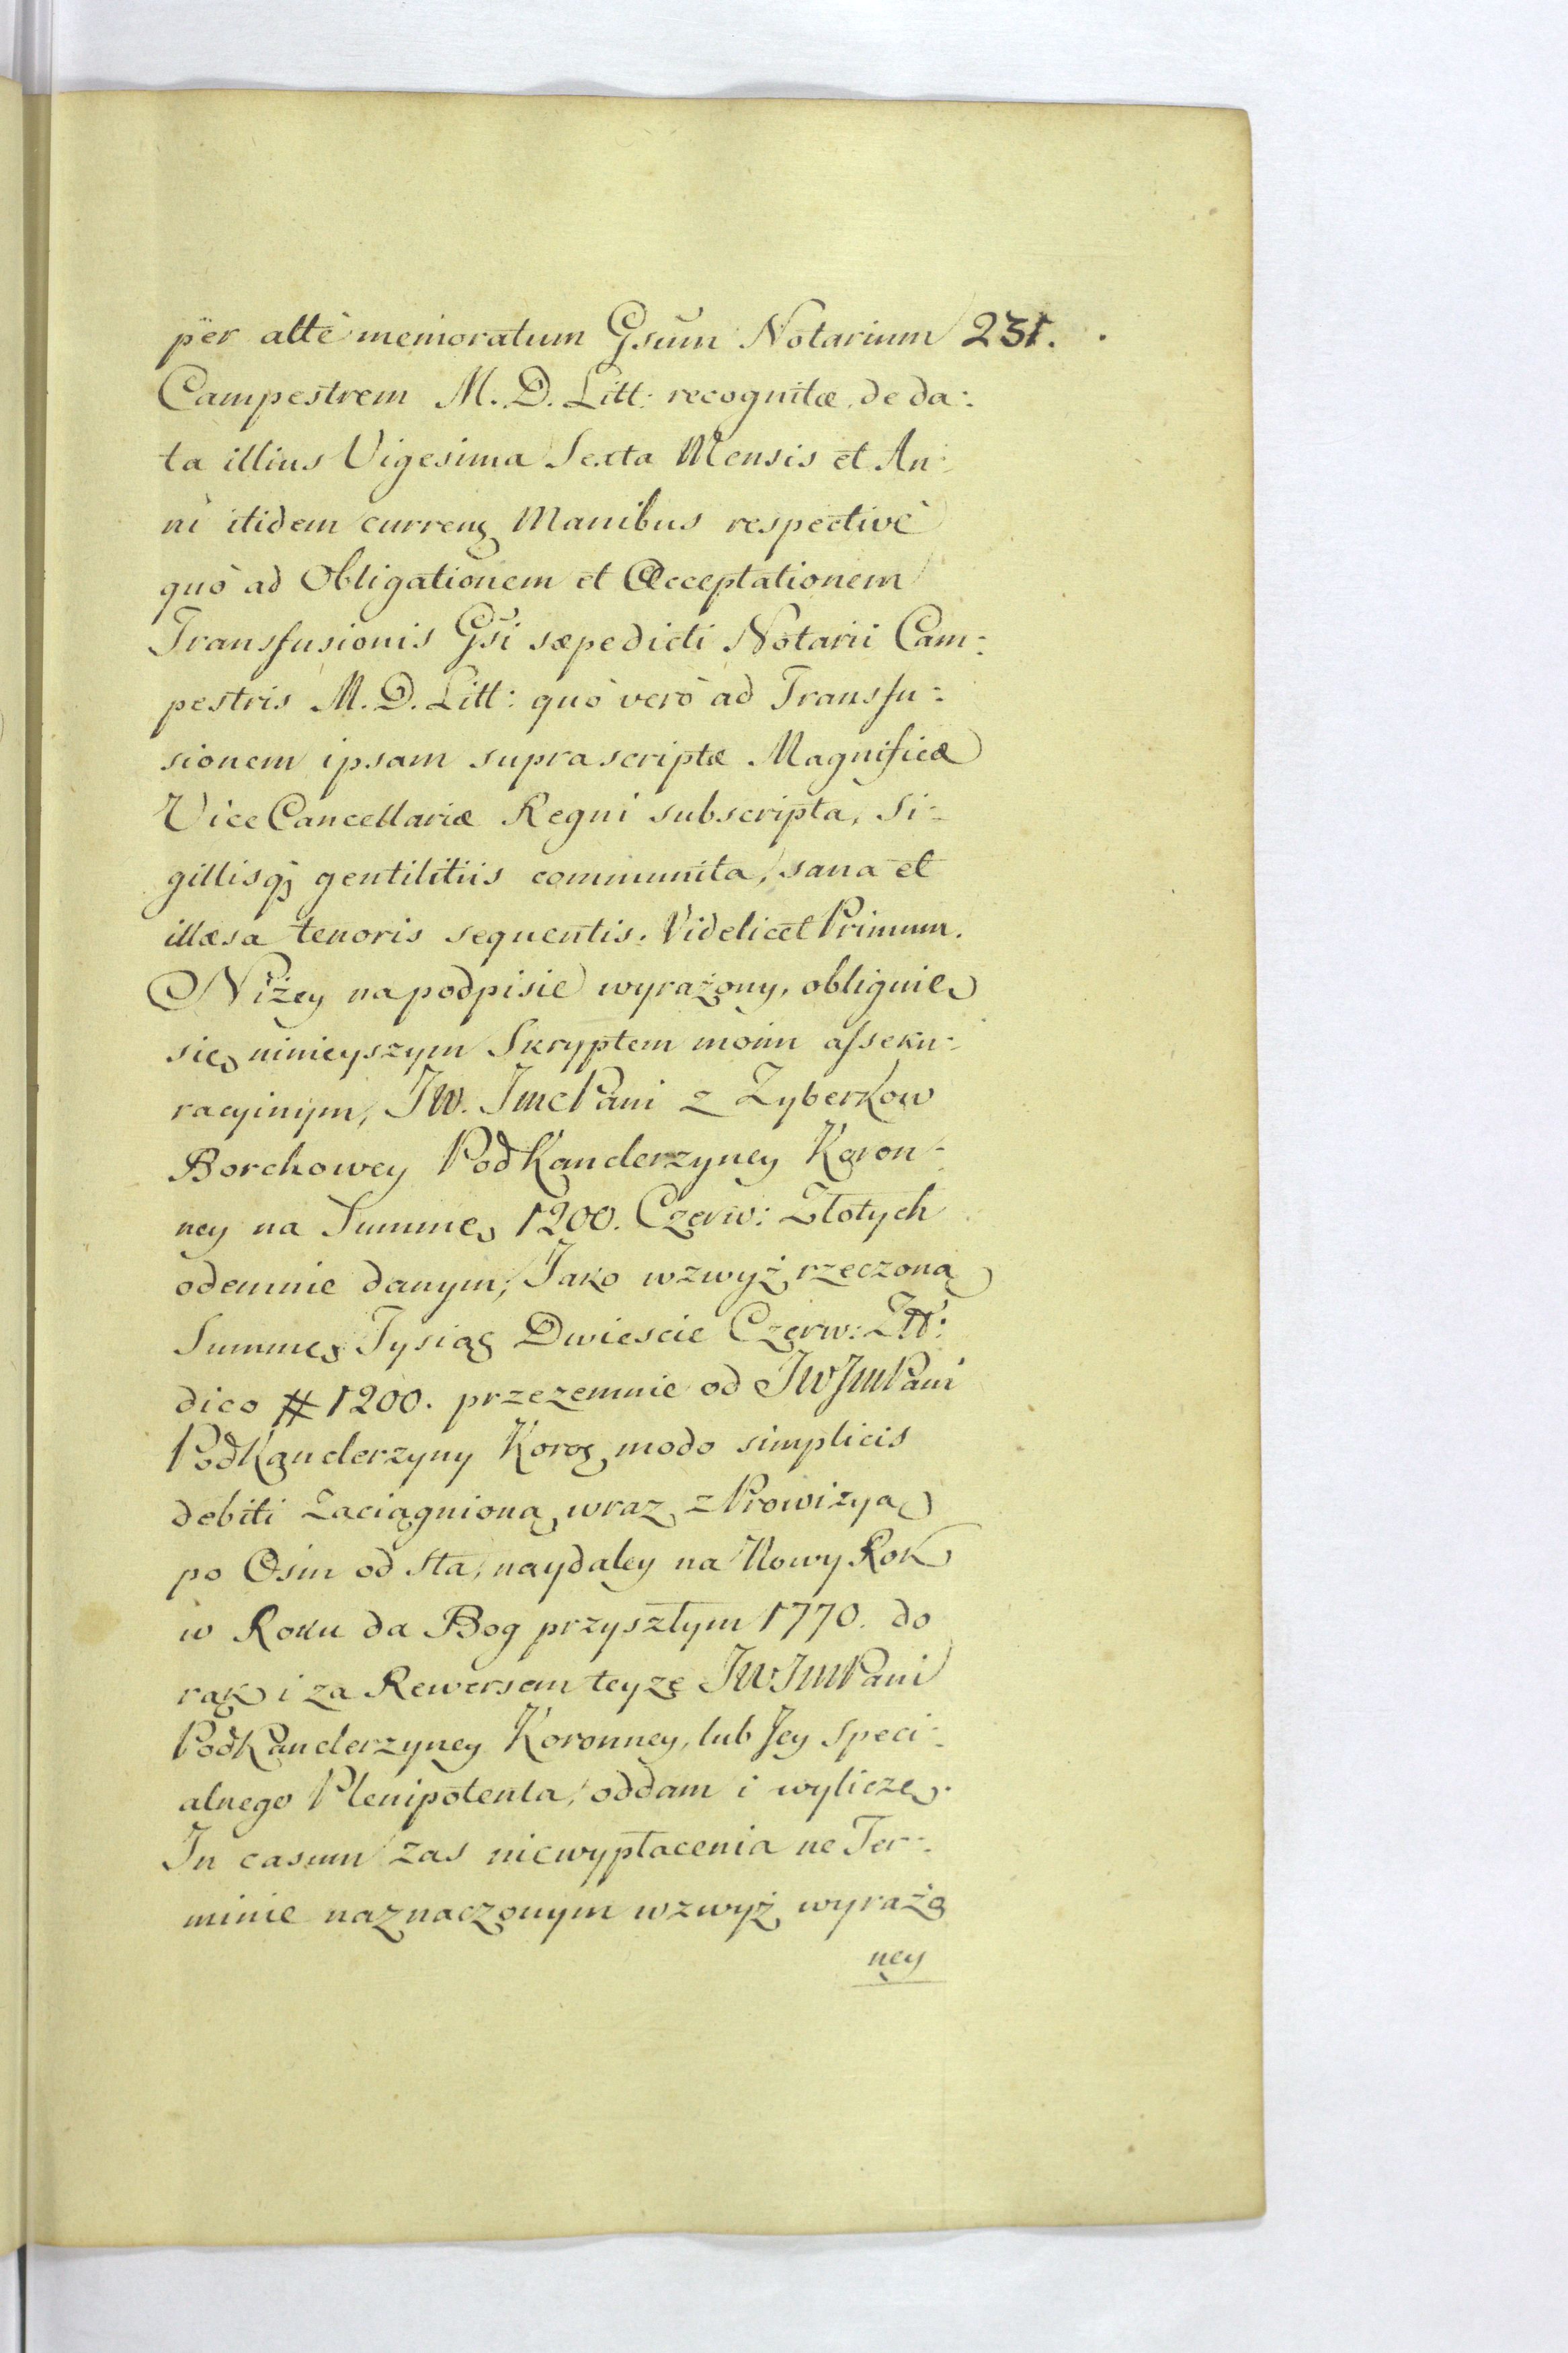 per altè memoratum Gsum Notarium 231.
Campestrem M. D. Litt: recognitæ, de da:
ta illius Vigesima Sexta Mensis et An:
ni itidem curreng Manibus respectivè
quò ad Obligationem et Acceptationem
Transfusionis Gsi sæpedicti Notarii Cam:
pestris M. D. Litt: quò verò ad Transfu:
sionem ipsam suprascriptæ Magnificæ
ViceCancellariæ Regni subscripta, Si:
gillisq; gentilitiis communita, sana et
illæsa tenoris sequentis. Videlicet Primum.
Niżey na podpisie wyrażony, obliguię
się ninieyszym Skryptem moim assekú:
racyinym, JW. JmcPani z Zyberkow
Borchowey PodKanclerzyney Koron:
ney na Summę 1200. Czerw: Złotych
odemnie danym, Jako wzwyż rzeczoną
Summę Tysiąc Dwiescie Czerw: Złł:
dico # 1200. przezemnie od JWJmPani
PodKanclerzyny Koroz modo simplicis
debiti Zaciągnioną, wraz z Prowizyą
po Osm od Sta, naydaley na Nowy Rok
w Roku da Bog przyszłym 1770. do
rąk i za Rewersem teyze JWJmPani
PodKanclerzyney Koronney, lub Jey Speci:
alnego Plenipotenta, oddam i wyliczę.
In casum zas niewypłacenia ne Ter:
minie naznaczonym wzwyż wyrażo
ney